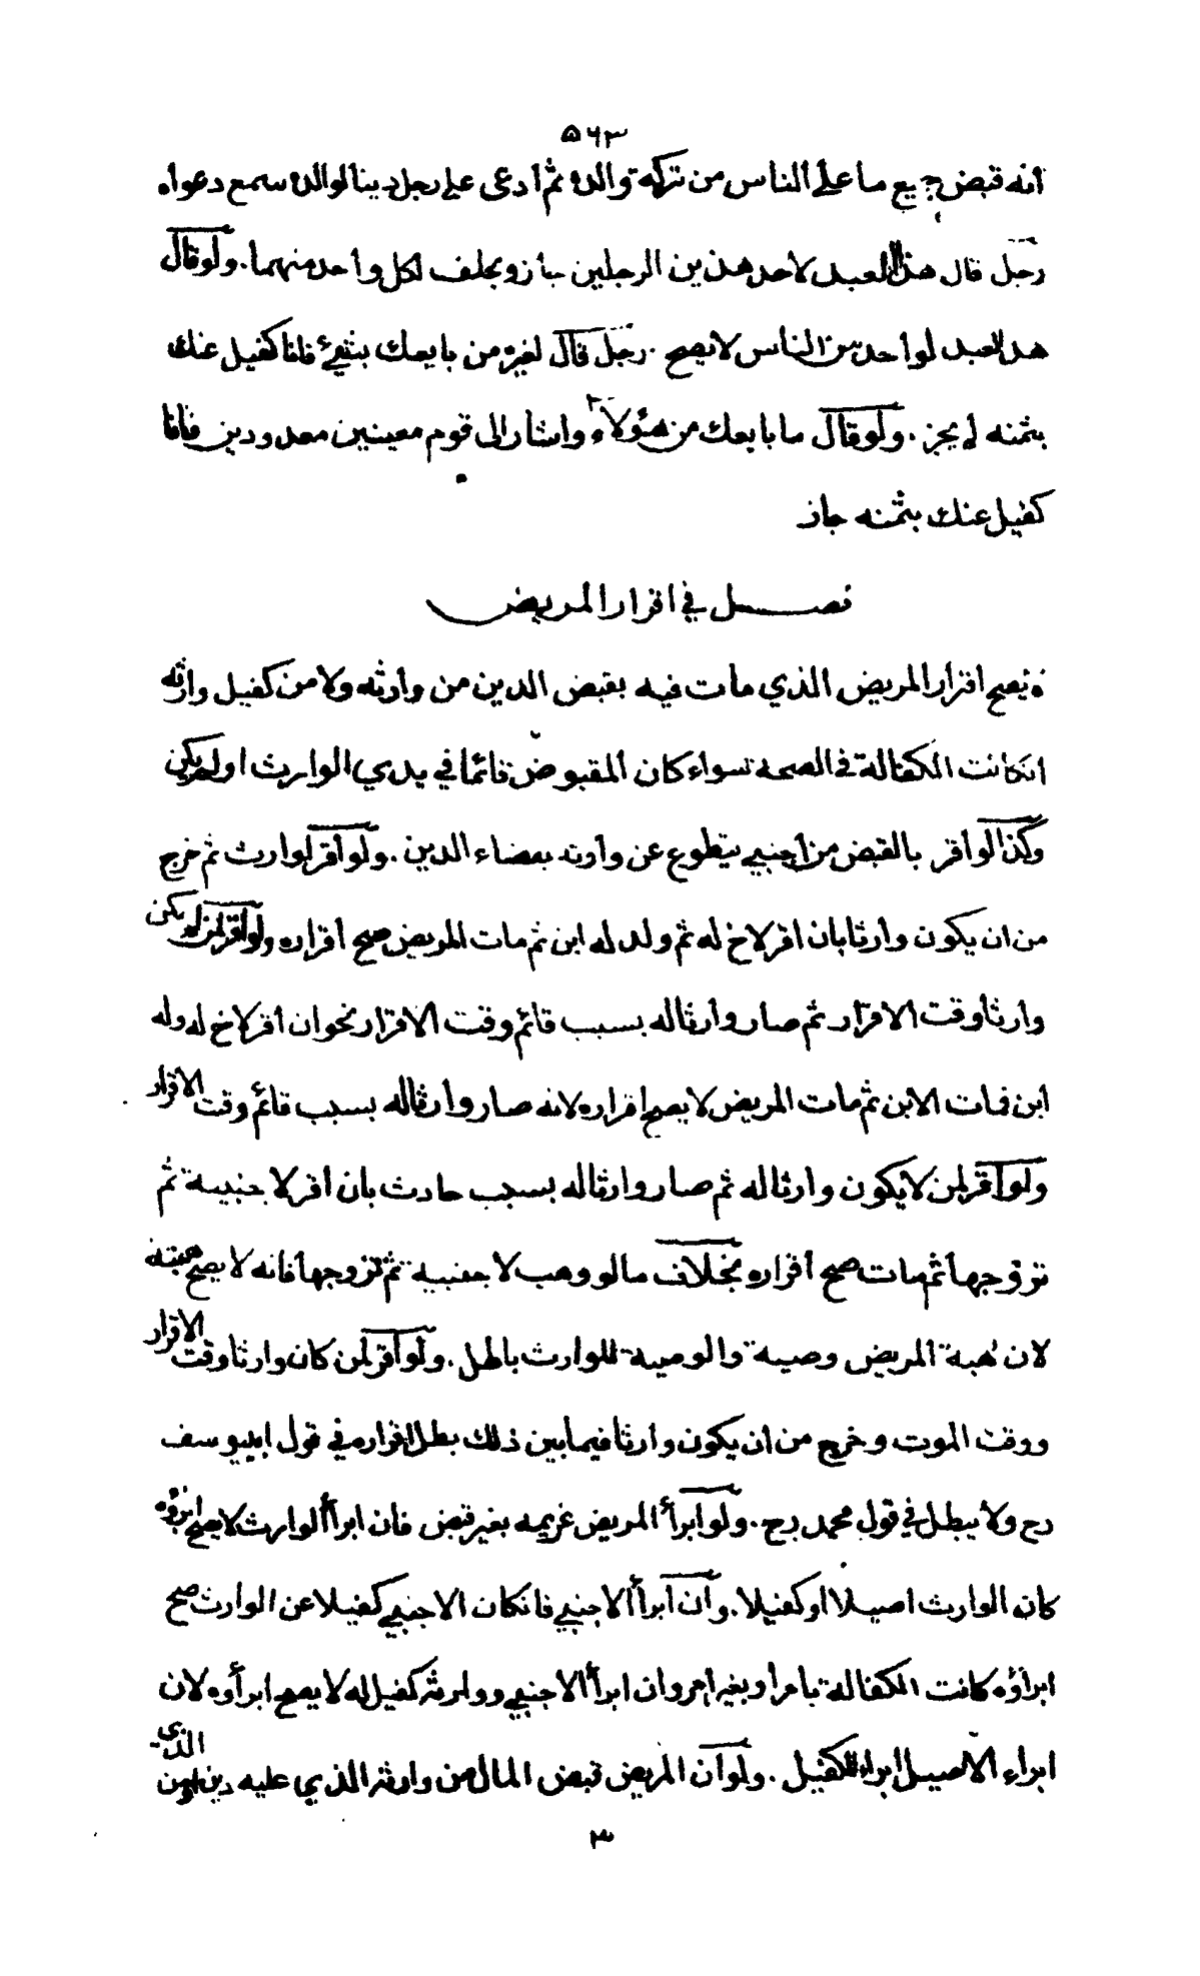 ۵۶۳
انه قبض جميع ما على الناس من تركة والده ثم ادعى على رجل دينا لوالده سمع دعواه
رجل قال هذا العبد لاحد هذين الرجلين جاز ويحلف لكل واحد منهما . ولو قال
هذا العبد لواحد من الناس لا يصح . رجل قال لغيره من بايعك بشيء فانا كفيل عنك
بثمنه لم يجز . ولو قال ما بايعك من هؤلاء واشار الى قوم معينين معدودين فانا
كفيل عنك بثمنه جاز
فصل في اقرار المريض
يصح اقرار المريض الذي مات فيه بقبض الدين من وارثه ولا من كفيل وارثه
ان كانت الكفالة في الصحة سواء كان المقبوض قائما في يدي الوارث او لم يكن
وكذا لو اقر بالقبض من اجنبي يتطوع عن وارثه بقضاء الدين . ولو اقر لوارث ثم خرج
من ان يكون وارثا بان اقر لاخ له ثم ولد له ابن ثم مات المريض صح اقراره ولو اقر لمن لم يكن
وارثا وقت الاقرار ثم صار وارثا له بسبب قائم وقت الاقرار نحو ان اقر لاخ له وله
ابن فمات الابن ثم مات المريض لا يصح اقراره لانه صار وارثا له بسبب قائم وقت الاقرار
ولو اقر لمن لا يكون وارثا له ثم صار وارثا له بسبب حادث بان اقر لاجنبية ثم
تزوجها ثم مات صح اقراره بخلاف ما لو وهب لاجنبية ثم تزوجها فانه لا يصح هبته
لان هبة المريض وصية والوصية للوارث باطل . ولو اقر لمن كان وارثا وقت الاقرار
ووقت الموت وخرج من ان يكون وارثا فيما بين ذلك بطل اقراره في قول ابييوسف
رح ولا يبطل في قول محمد رح . ولو ابرأ المريض غريمه بغير قبض فان ابرأ الوارث لا يصح ابرؤه
كان الوارث اصيلا او كفيلا . وان ابرأ الاجنبي فانكان الاجنبي كفيلا عن الوارث صح
ابراؤه كانت الكفالة بامر او بغير امر وان ابرأ الاجنبي ووارثه كفيل له لا يصح ابرأوه لان
ابراء الاصيل ابراء للكفيل . ولو ان المريض قبض المال من وارثه الذي عليه دين او من الذي
۳